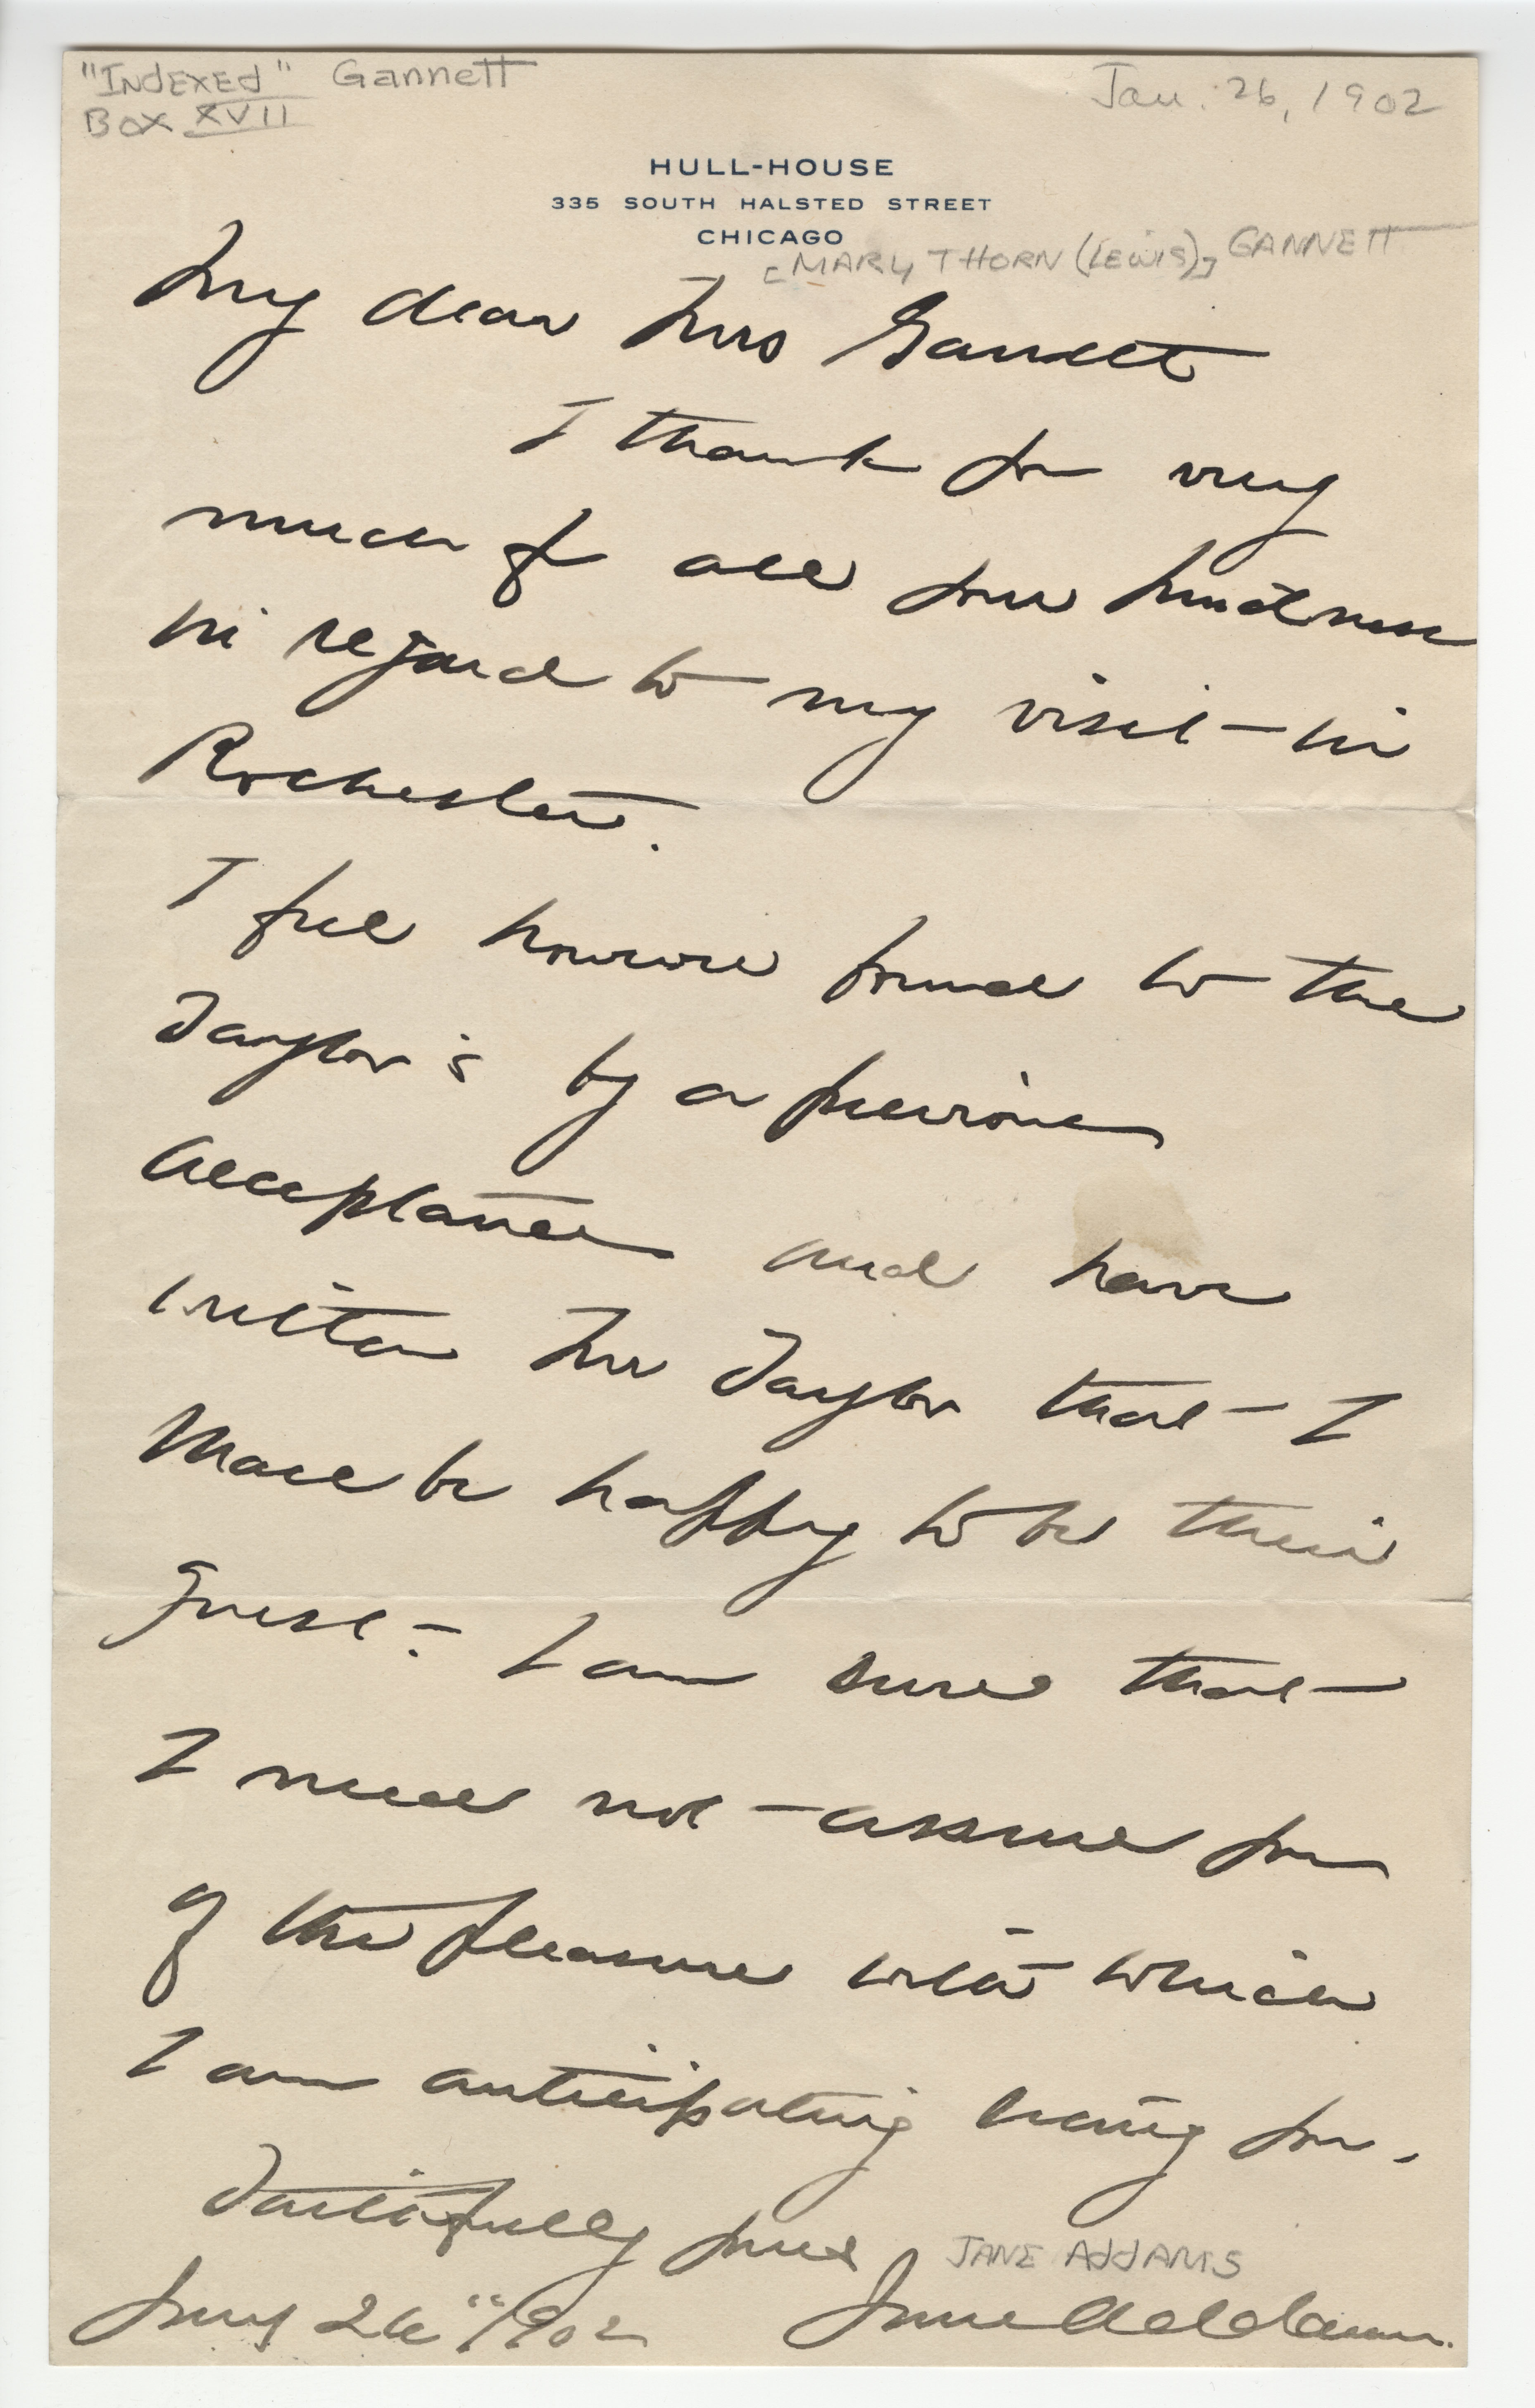 "INDEXED" Gannett
Jan. 26, 1902
BOX XVII
HULL-HOUSE
335 SOUTH HALSTED STREET
CHICAGO
[MARY THORN (LEWIS)] GANNETT
My dear Mrs Gannett
I thank you very
much for all your kindness
in regard to my visit in
Rochester.
I feel honor bound to the
Taylor's by a previous
acceptance and have
written Mr Taylor that I
shall be happy to be their
guest. I am sure that
I need not assure you
of the pleasure with which
I am anticipating seeing you.
Faithfully yours
JANE ADDAMS
Jany 26" 1902 Jane Addams.